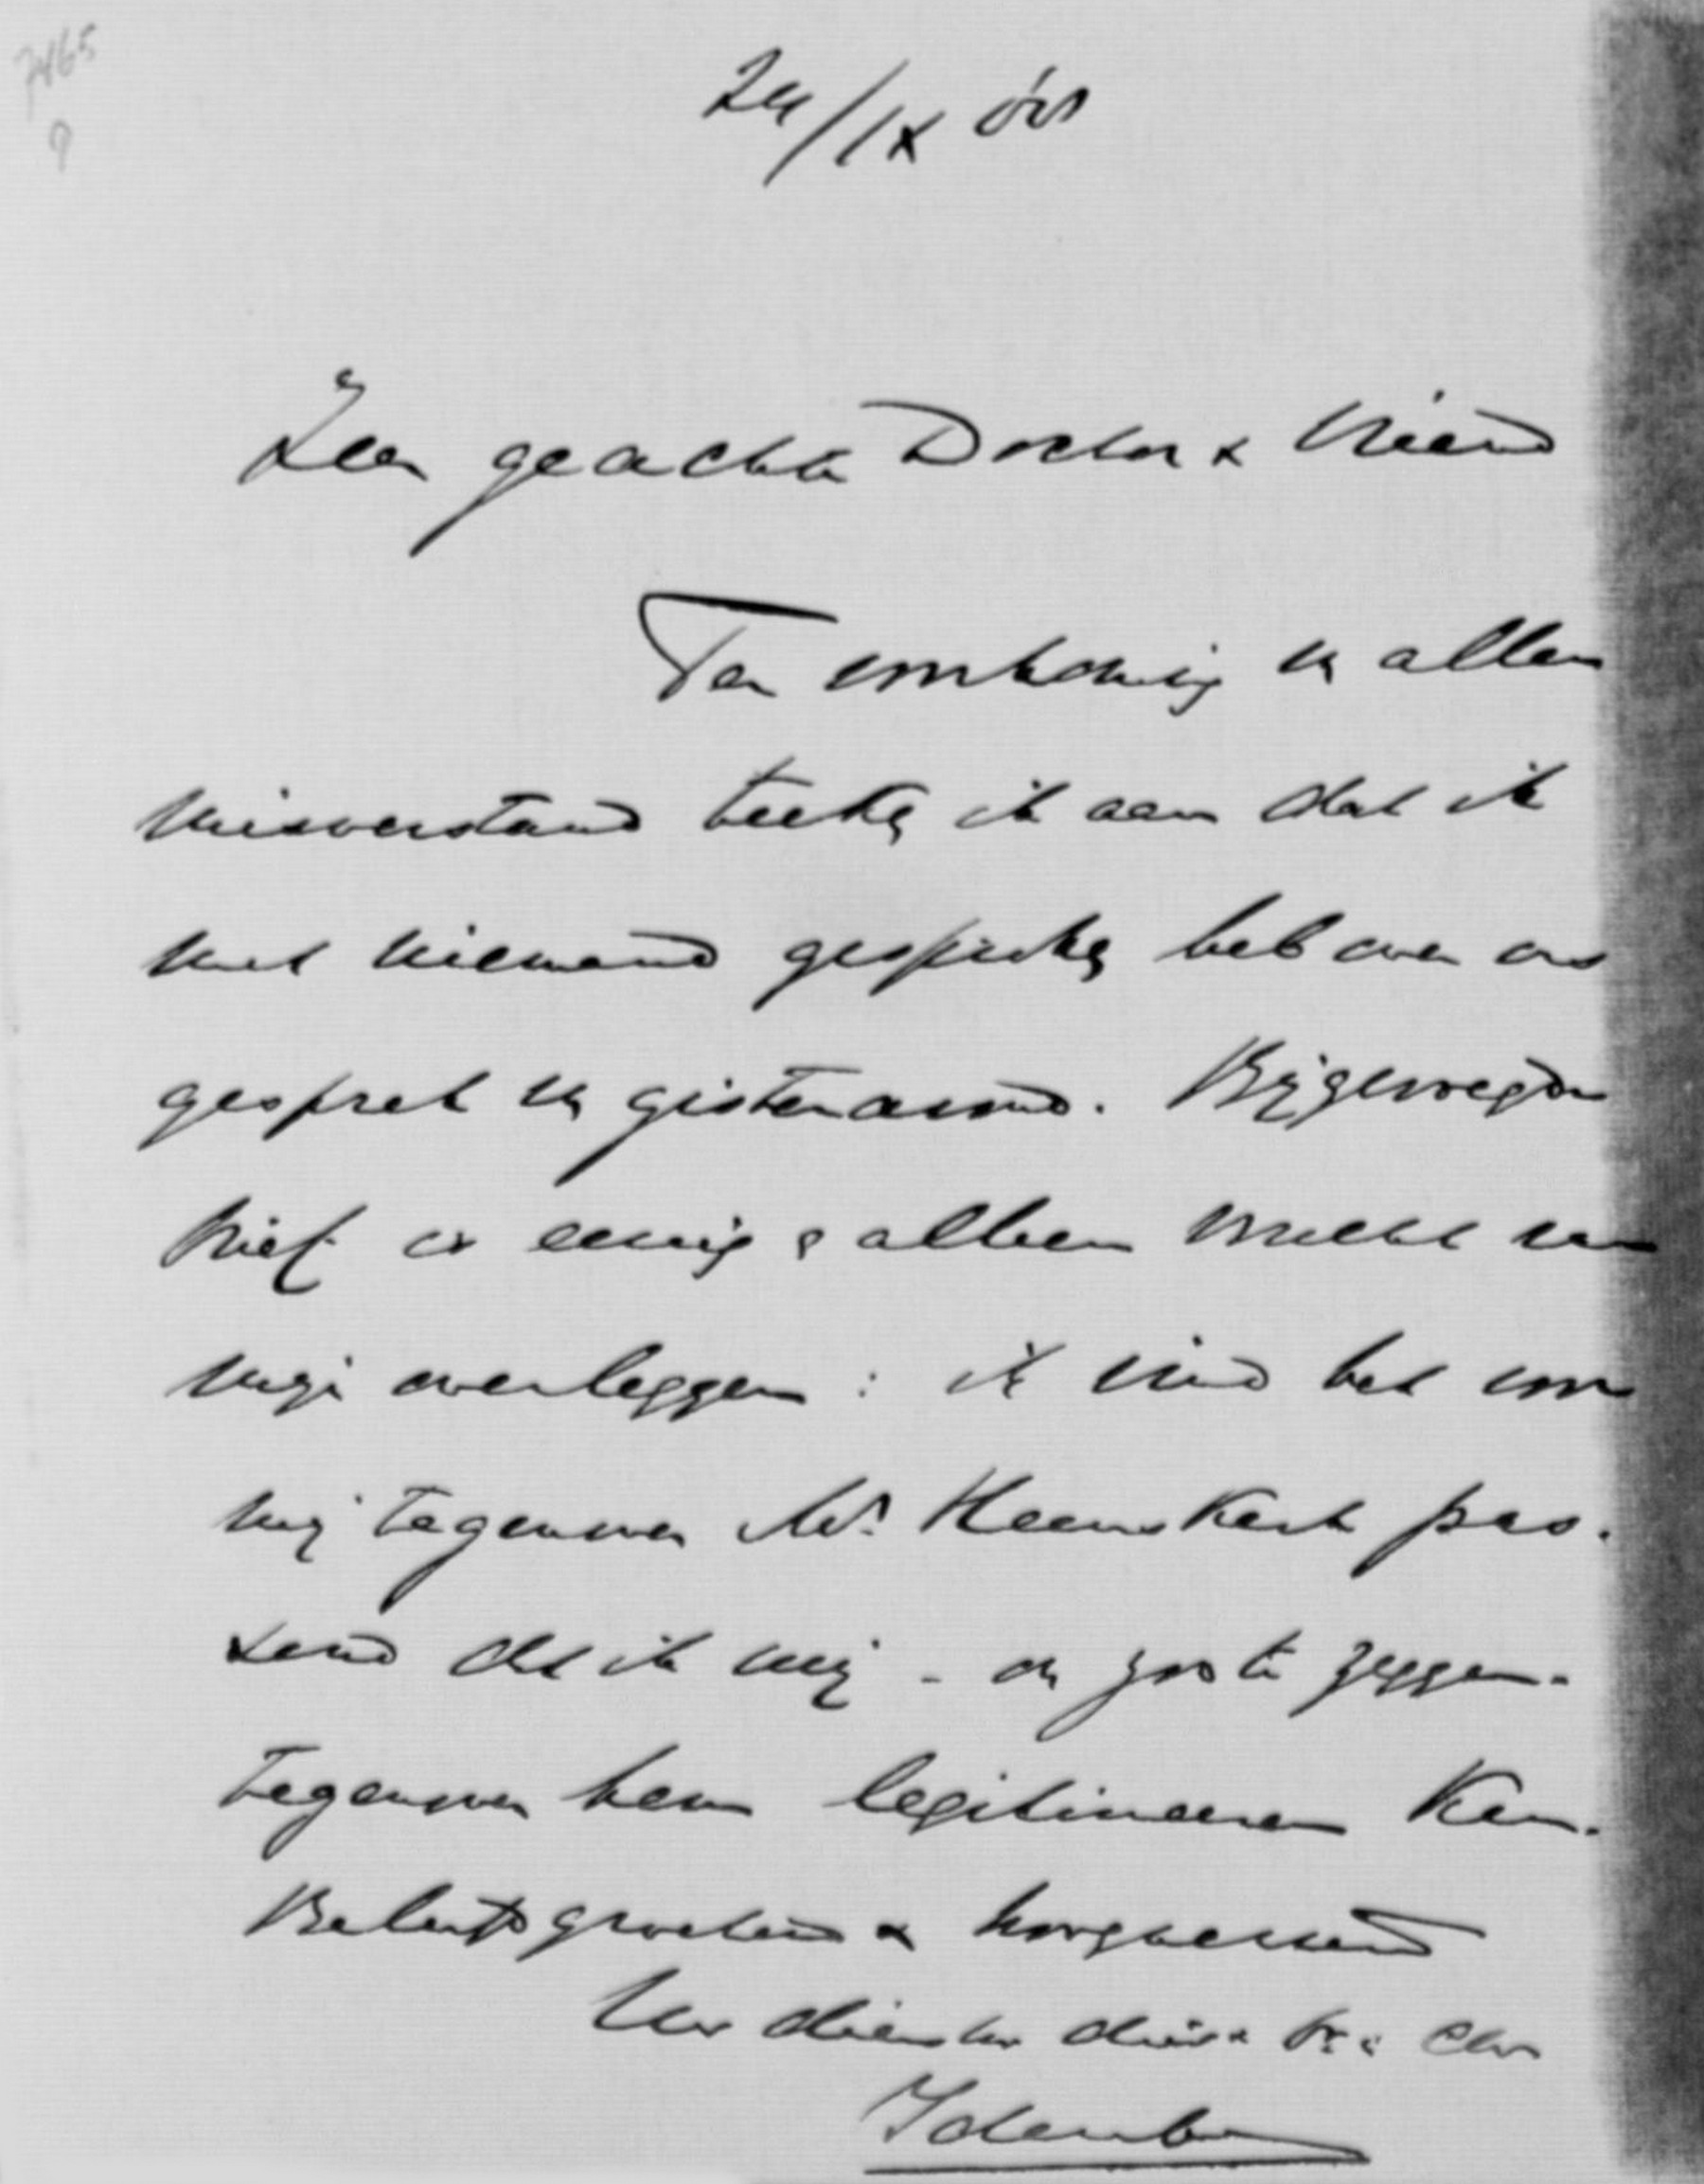 7465
9
24/IX
Zeer geachte Doctor & Vriend
Ter voorkoming van allen
misverstand teeken ik aan dat ik
met niemand gesproken heb over ons
gesprek van gisteravond. Bijgevoegden
brief is eenig & alleen
mijn overleggen: ik vind het voor
mij tegenover Mr. Heemskerk pas-
send dat ik mij - om zoo te zeggen -
tegenover hem legitimeeren kan.
Beleefd groetend & hoogachtend
Uw
Idenburg